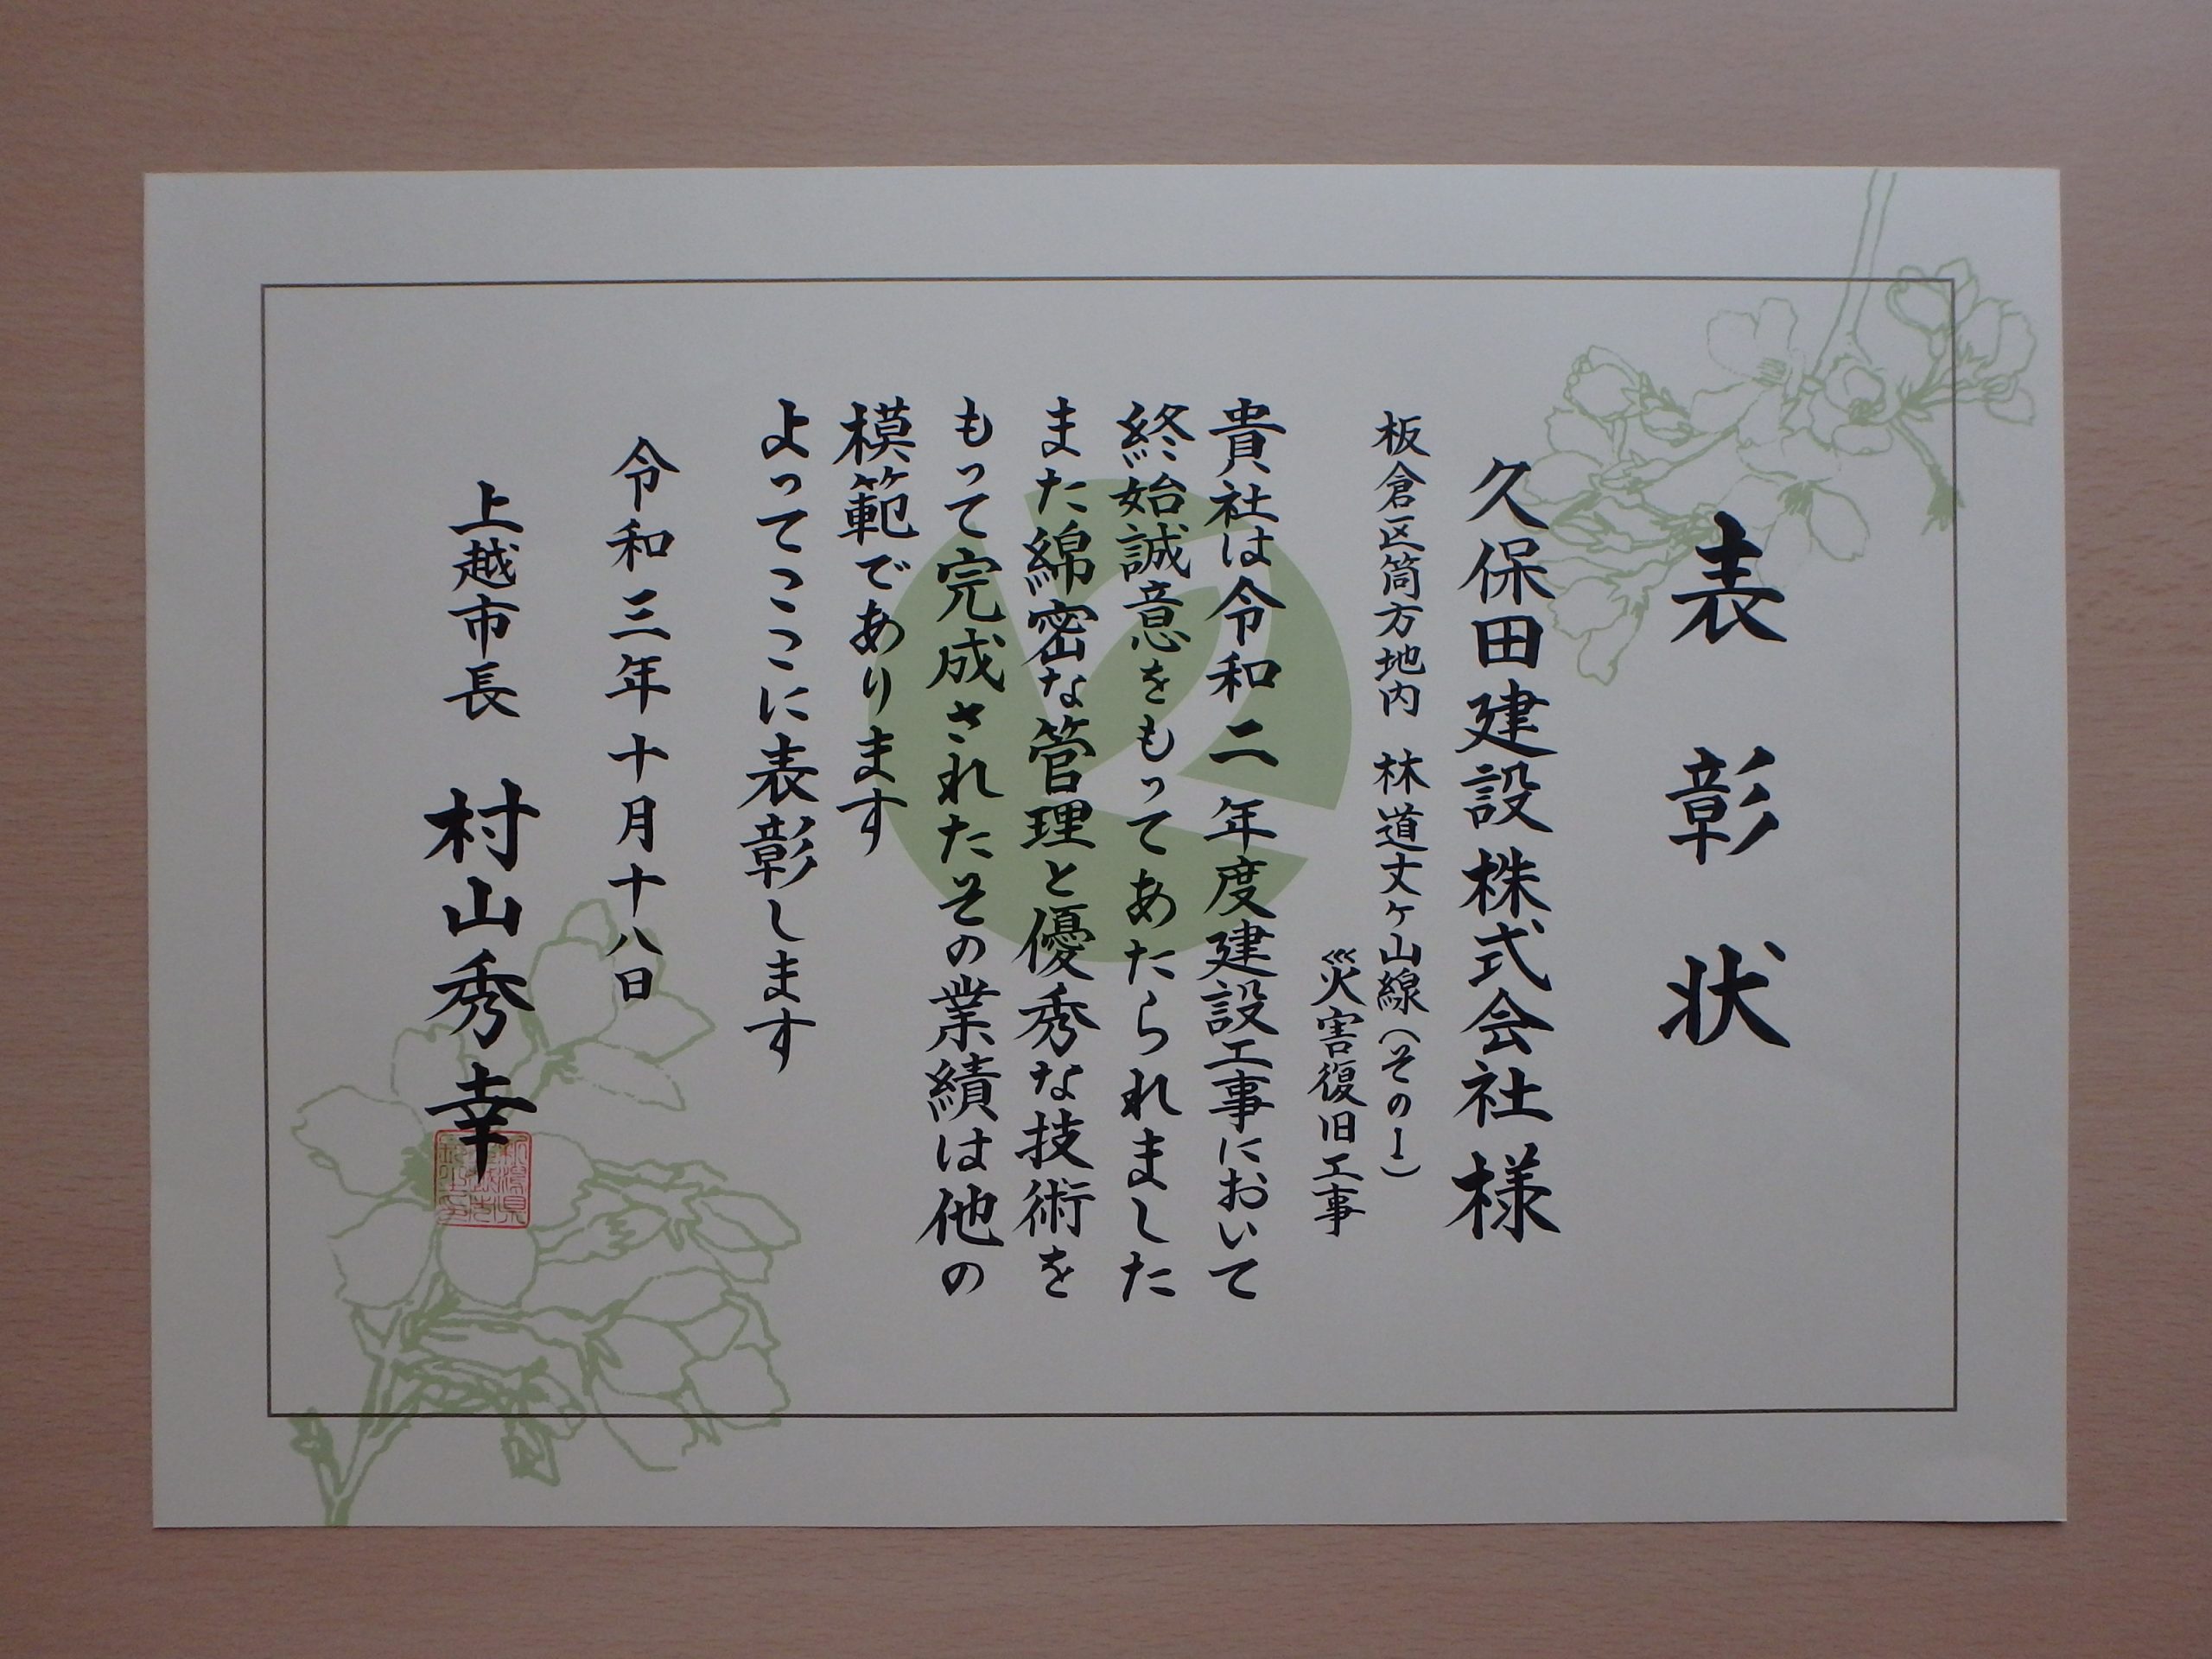 表彰状
久保田建設株式会社様
板倉区筒方地内 林道丈ヶ山線(その1)
災害復旧工事
貴社は令和二年度建設工事において
終始誠意をもってあたられました
また綿密な管理と優秀な技術を
もって完成されたその業績は他の
模範であります
よってここに表彰します
令和三年十月十八日
上越市長 村山秀幸